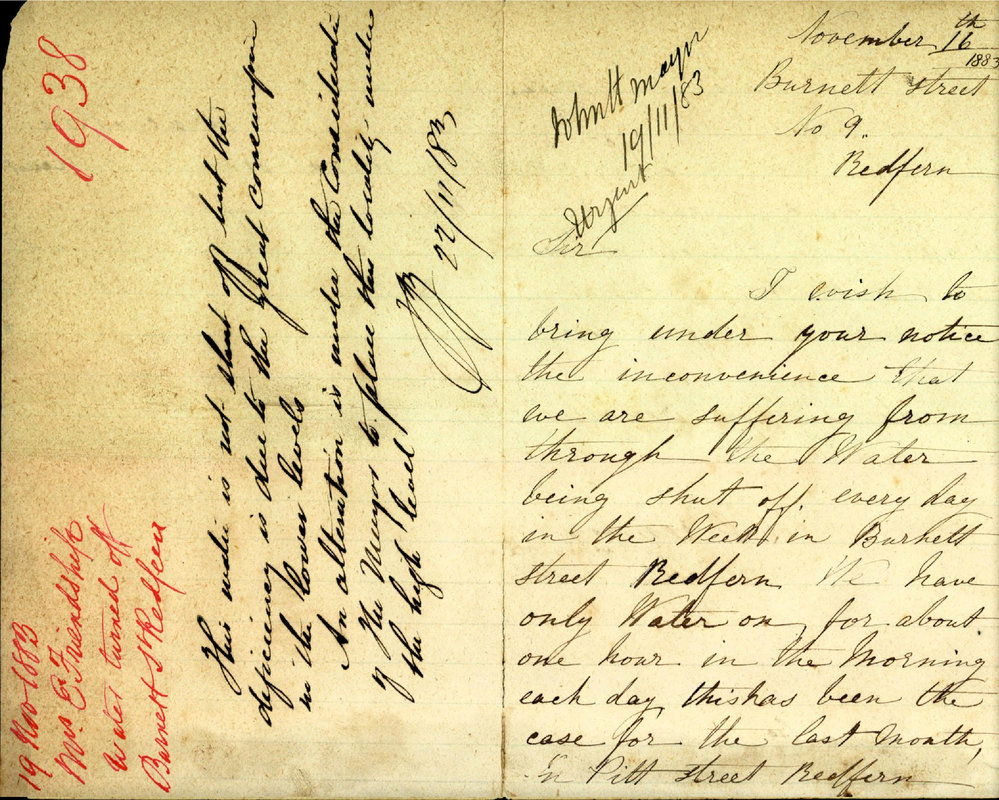 1938
19 Nov 1883
Mrs E Friendship
Water turned off
Burnet St Redfern
This water is not shut off but the
deficiency is due to the great consumption
in the lower levels
An alteration is under the consideration
of the Mayor to place this locality under
the high level
22/11/83
November 16th
1883
Burnett street
No 9.
Redfern
John H mayor
19/11/83
Urgent
Sir
I wish to
bring under your notice
the inconvenience that
we are suffering from
through the Water
being shut off. every day
in the Week in Burnett
street Redfern We have
only Water on, for about
one hour in the Morning
each day, this has been the
case for the last Month,
In Pitt street Redfern